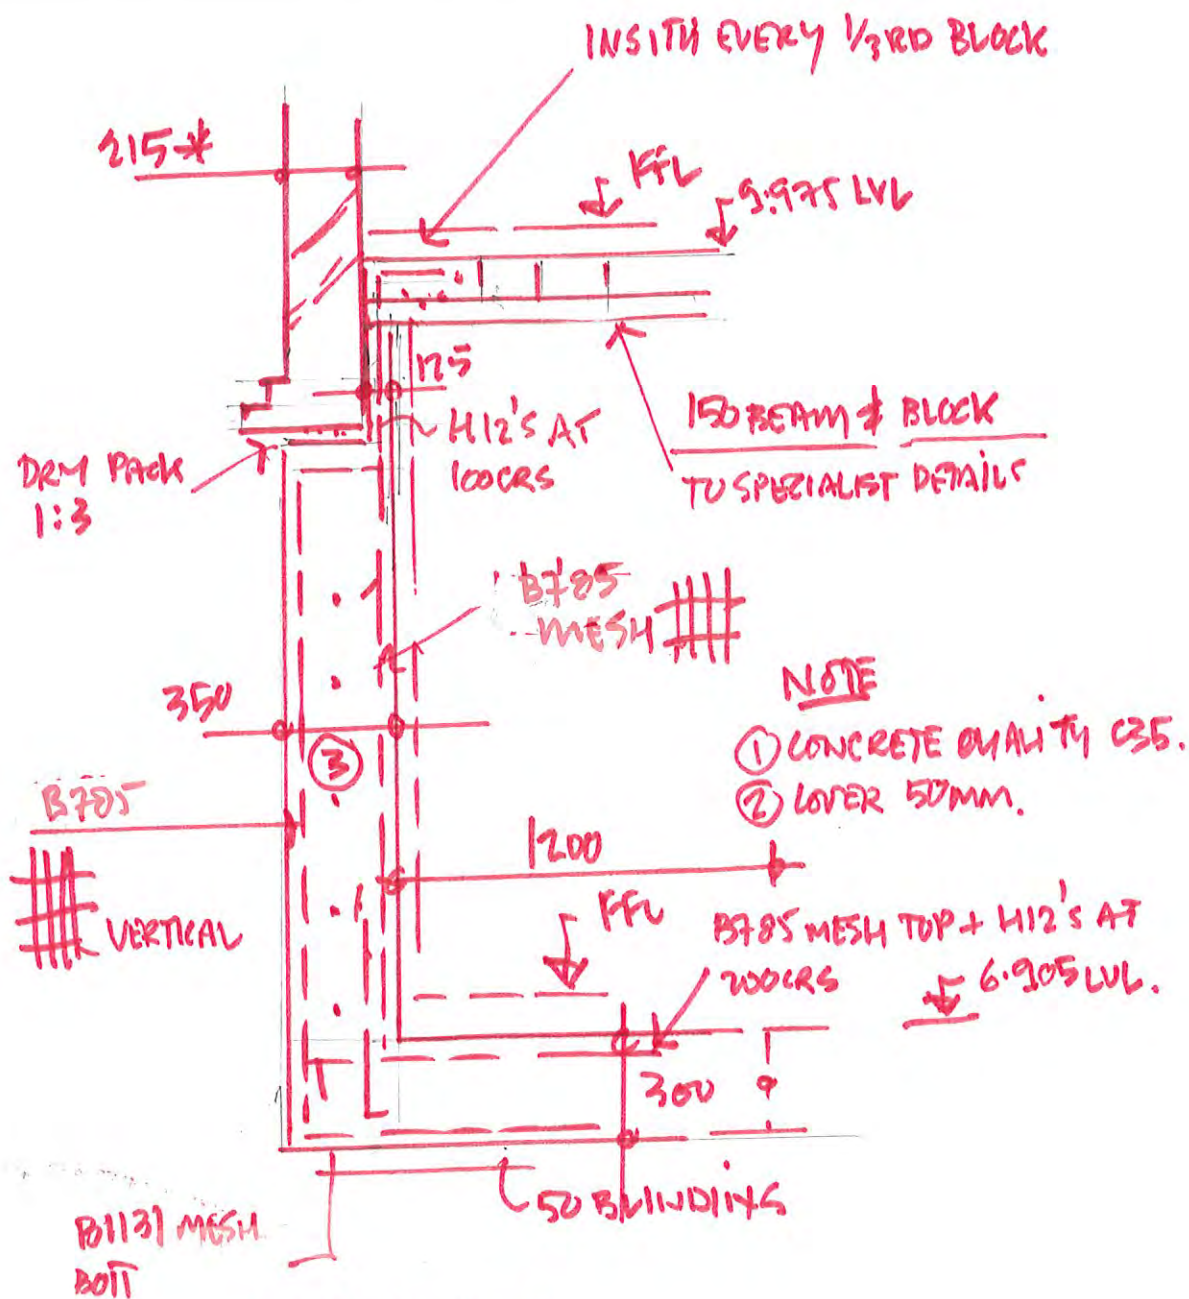 INSITU EVERY 1/3RD BLOCK
215*
FFL
9.975 LVL
125
H12'S AT
100CRS
150 BEAM & BLOCK
TO SPECIALIST DETAILS
DRY PACK
1:3
B785
MESH
350
3
NOTE
① CONCRETE QUALITY C35.
② COVER 50MM.
B785
VERTICAL
1200
FFL
B785 MESH TOP + H12'S AT
200CRS
6.905 LVL.
300
50 BLINDING
B1131 MESH
BOTT